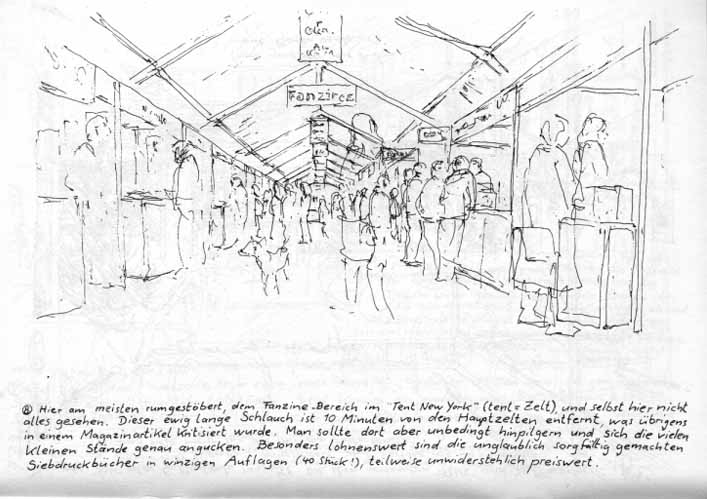 Fanzines
⑧ Hier am meisten rumgestöbert, dem Fanzine-Bereich im "Tent New York" (tent = Zelt), und selbst hier nicht
alles gesehen. Dieser ewig lange Schlauch ist 10 Minuten von den Hauptzelten entfernt, was übrigens
in einem Magazinartikel kritisiert wurde. Man sollte dort aber unbedingt hinpilgern und sich die vielen
kleinen Stände genau angucken. Besonders lohnenswert sind die unglaublich sorgfältig gemachten
Siebdruckbücher in winzigen Auflagen (40 Stück!), teilweise unwiderstehlich preiswert.